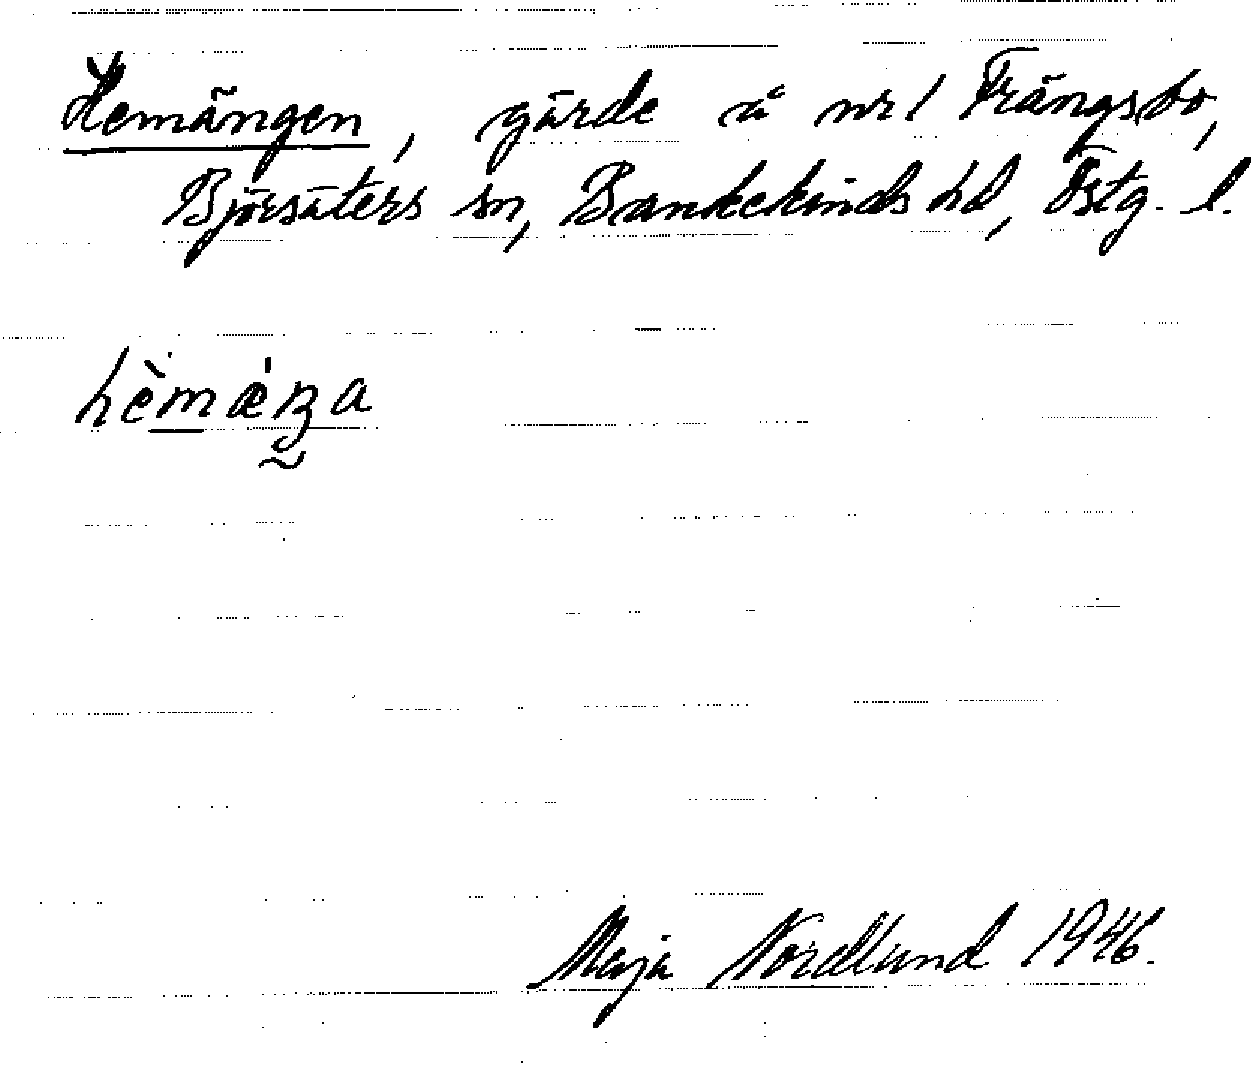 Hemängen, gärde å nr 1 Trängsbo,
Björsäters sn, Bankekinds hd, Östg. l.
hèmǽŋa
Maja Nordlund 1946.